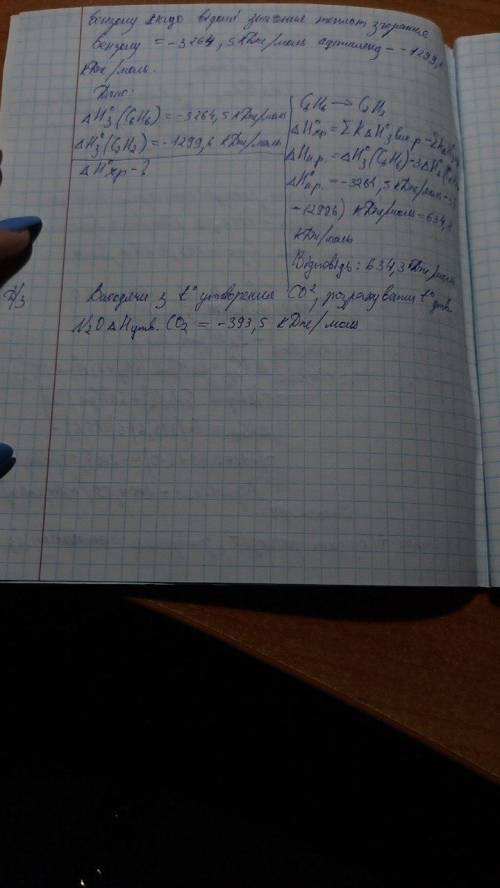 бензолу якщо відомі значення теплот згорання
бензолу = -3264,5 кДж/моль ацетилену - -1299,6
кДж/моль.
Дано:
ΔH°з (C6H6) = -3264,5 кДж/моль
ΔH°з (C2H2) = -1299,6 кДж/моль
ΔH°хр - ?
C6H6 → C2H2
ΔH°хр = Σ K ΔH°з вих.р - Σ
ΔHхр. = ΔH°з (C6H6) - 3ΔH°з
ΔH°хр. = -3264,5 кДж/моль - 3
-1299,6) кДж/моль = 634,3
кДж/моль
Відповідь: 634,3 кДж/моль
Д/з Виходячи з t° утворення CO2, розрахувати t° утв.
N2O ΔHутв. CO2 = -393,5 кДж/моль